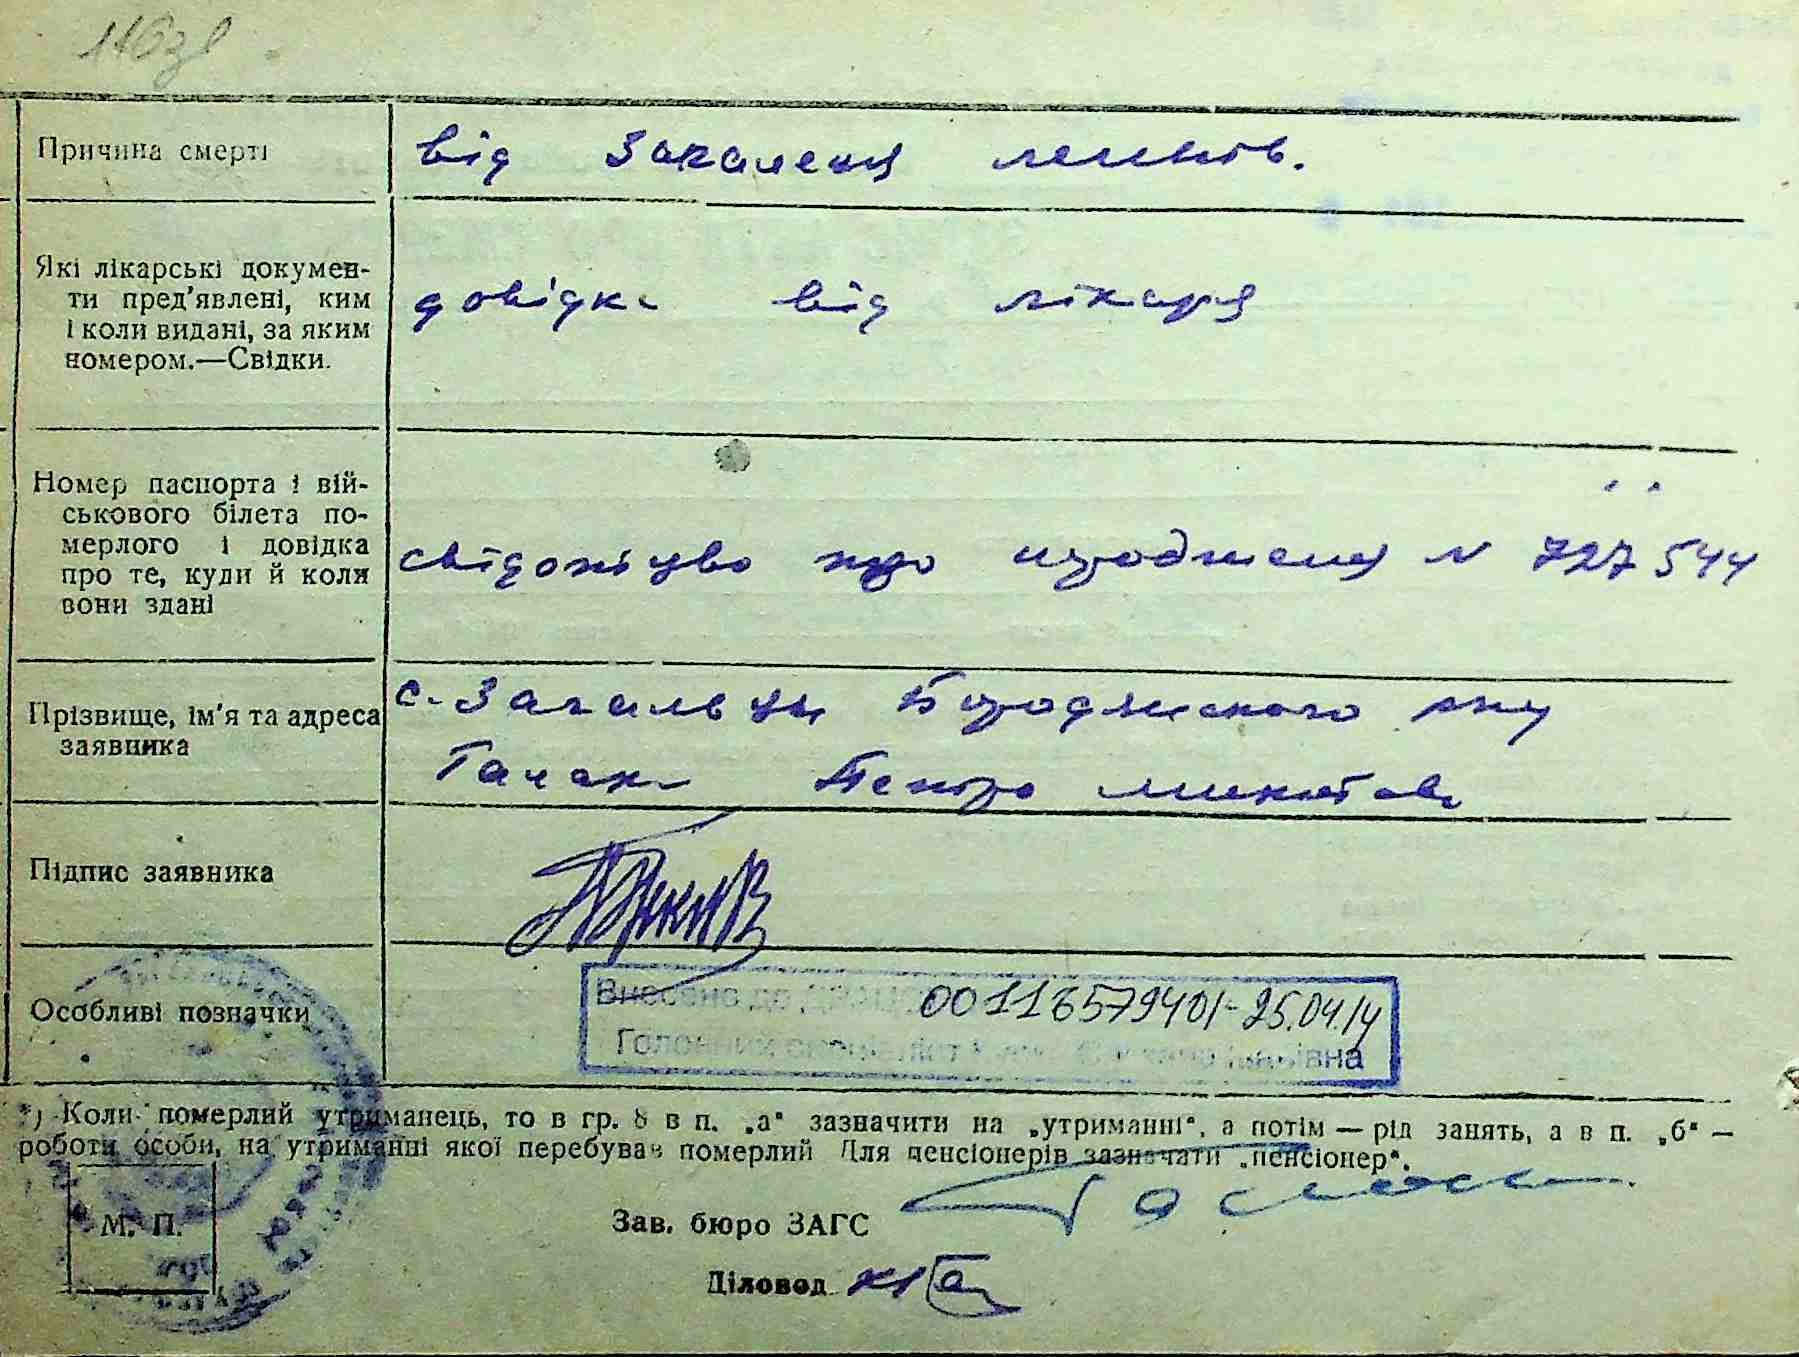 116зв
Причина смерті
від Запаленя легків.
Які лікарські докумен-
ти пред'явлені, ким
і коли видані, за яким
номером.—Свідки.
довідка від лікаря
Номер паспорта і вій-
ськового білета по-
мерлого і довідка
про те, куди й коли
вони здані
свідоцтво про народженя N 727544
Прізвище, ім'я та адреса
заявника
с. Загальці Бородянського р-ну
Петро
Підпис заявника
Особливі позначки
Внесено до 00116579401-25.04.14
Головний спеціаліст
*) Коли померлий утриманець, то в гр. 8 в п. „а“ зазначити на „утриманні“, а потім — рід занять, а в п. „б“ —
роботи особи, на утриманні якої перебував померлий Для пенсіонерів зазначати „пенсіонер“.
М. П.
Зав. бюро ЗАГС
Діловод